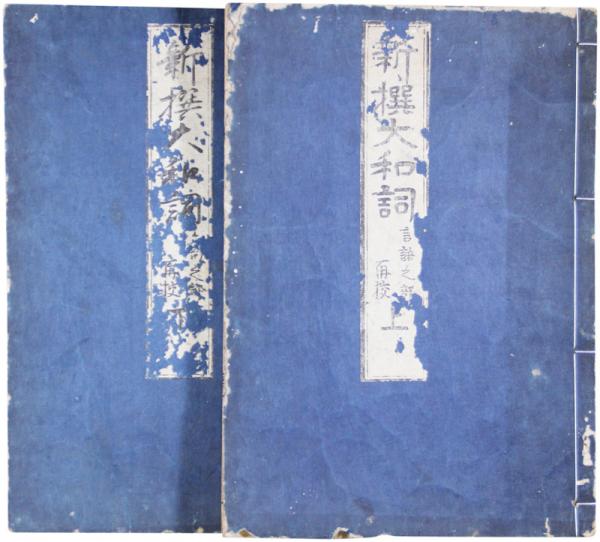 新撰大和詞
言語之部
再校
上
新撰大和詞
言語之部
再校
下